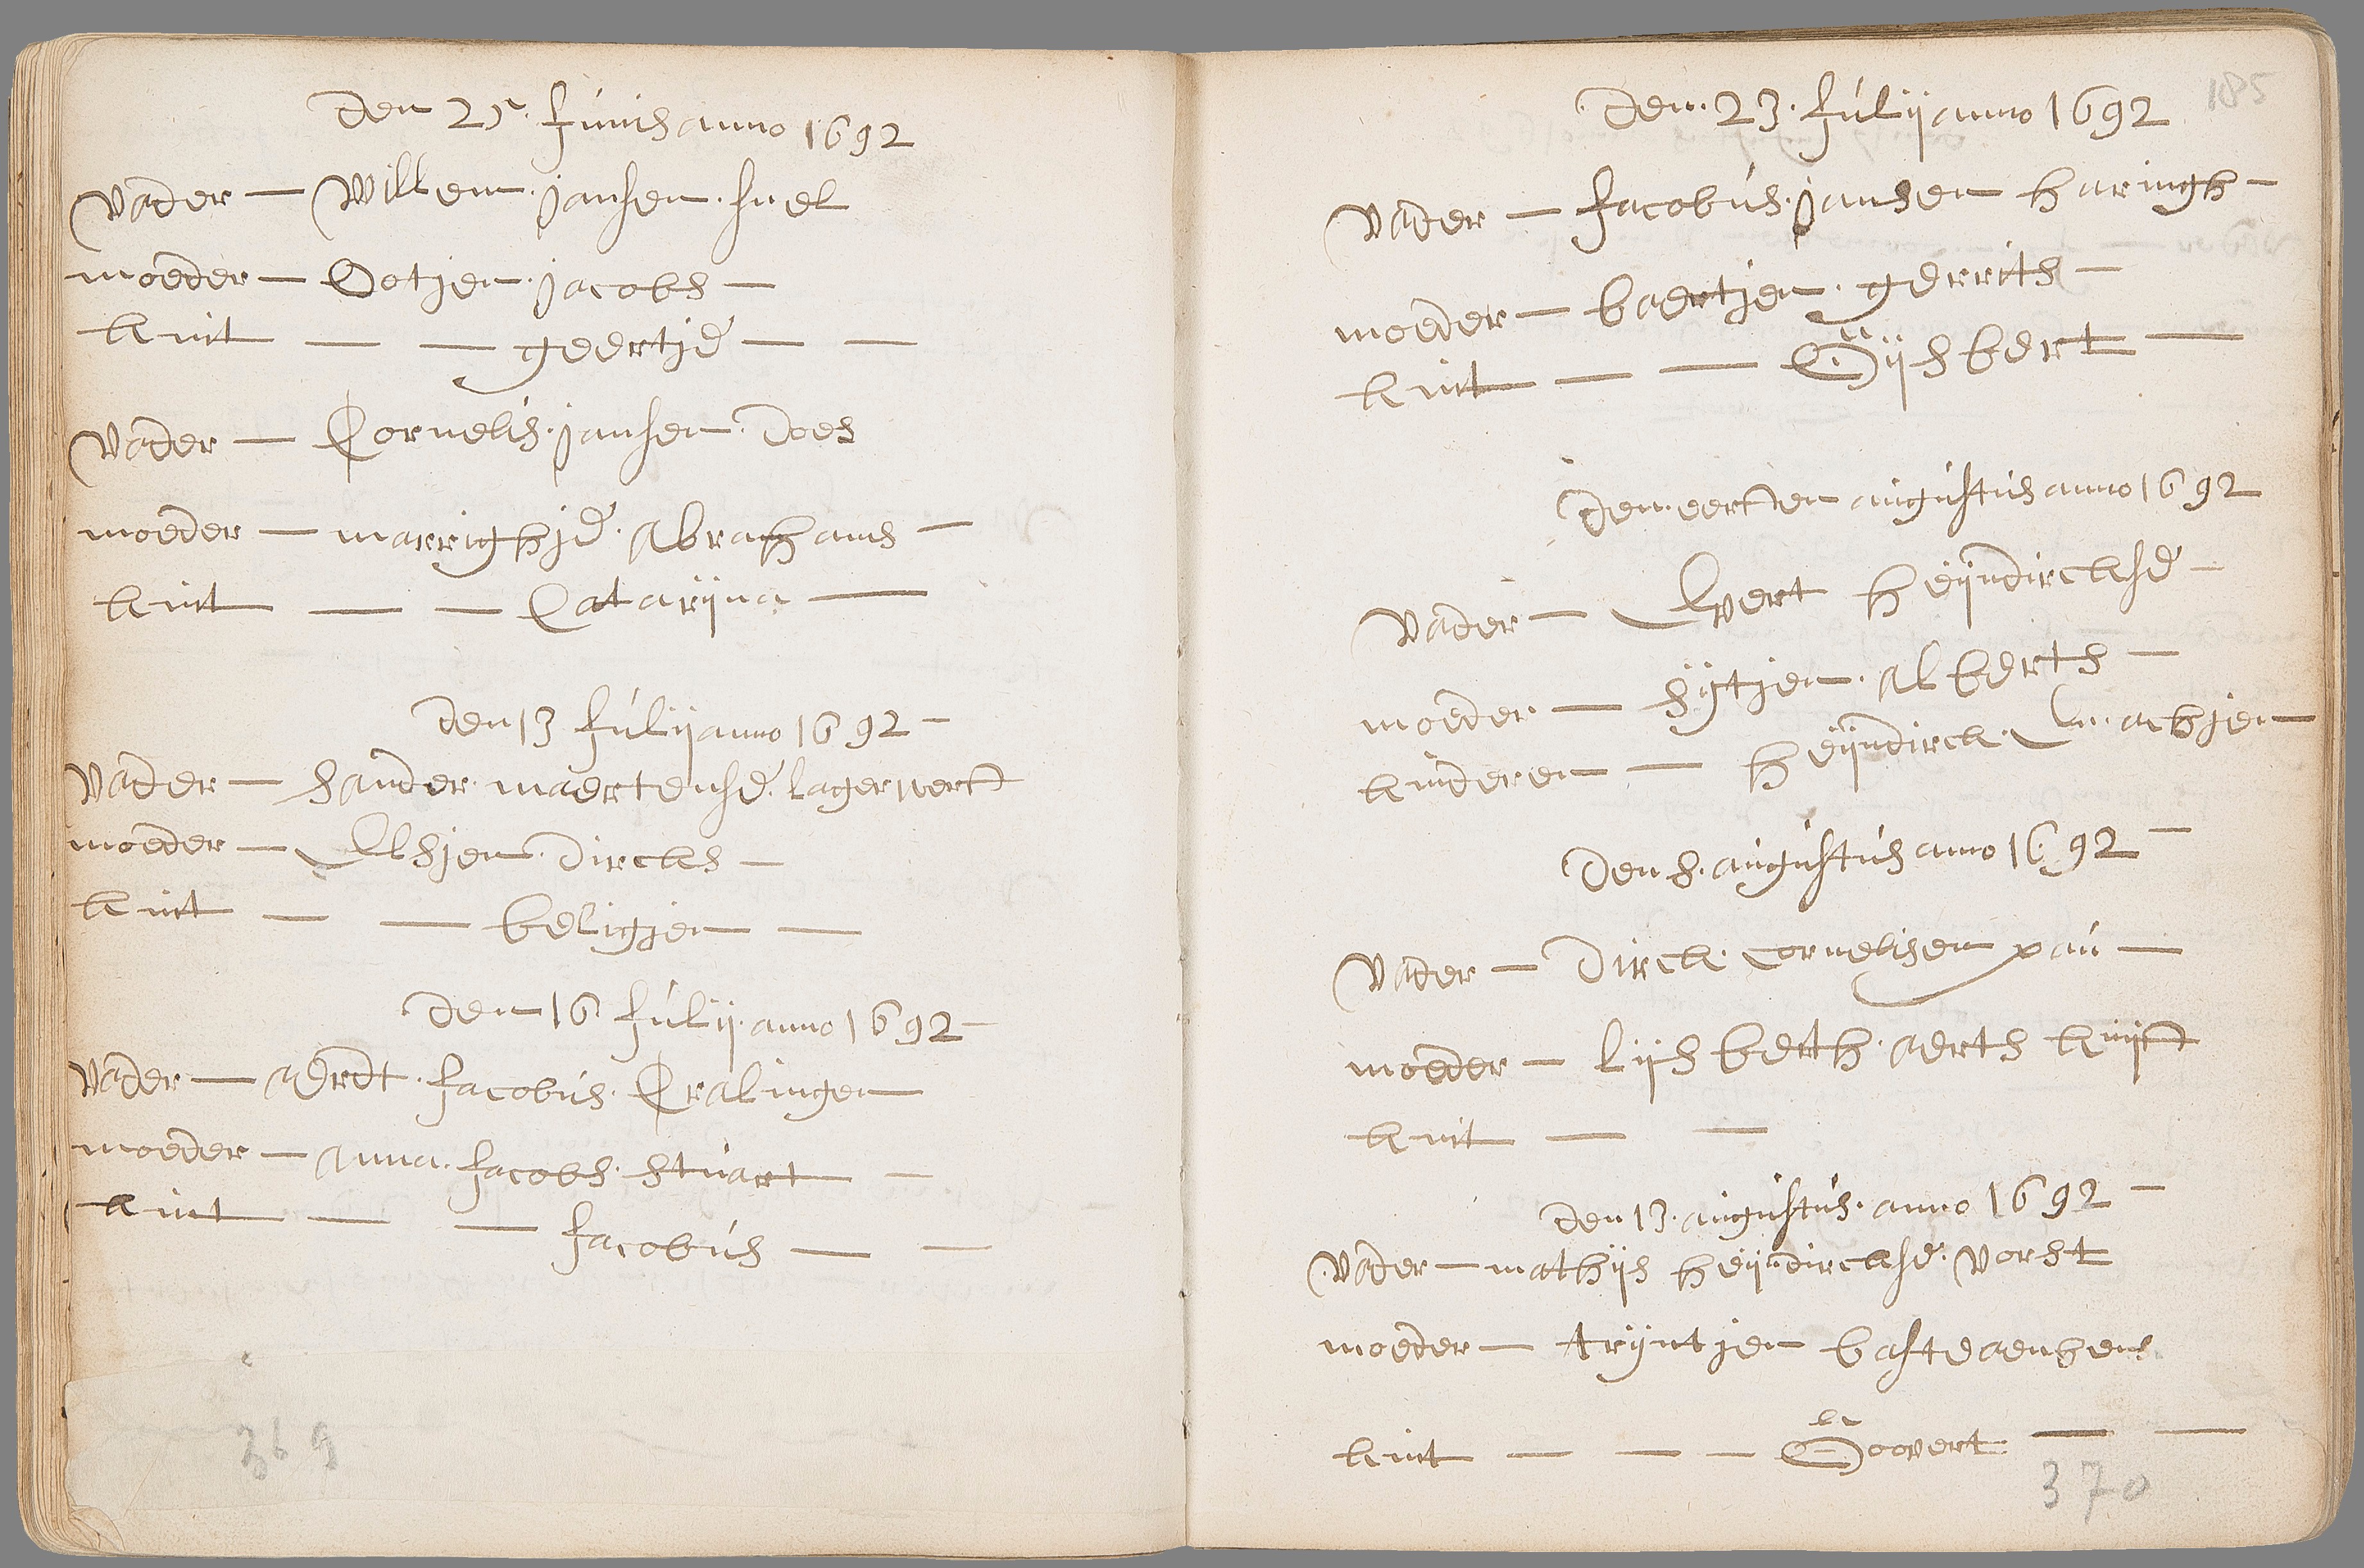 Den 25 Junis anno 1692
Vader — Willem Jansen snel
moeder — Ootjen Jacobs —
kint — — geertje — —
Vader — Cornelis Jansen Does
moeder — marrighje Abrahams —
kint — — Catarijna —
Den 13 Julij anno 1692 —
Vader — sander maertense lagerwerf
moeder — Elsjen Dircks —
kint — — beligjen —
Den 16 Julij anno 1692 —
Vader — aerdt Jacobus Cralingen
moeder — Anna Jacobs stuart —
kint — — Jacobus — —
369
185
Den 23 Julij anno 1692
Vader — Jacobus Jansen haringh —
moeder — baertjen gerrits —
kint — — Gijsbert —
Den eersten augustus anno 1692
Vader — Evert heijndirckse —
moeder — sijtjen Alberts —
kinderen — heijndirck En achjen
Den 8 augustus anno 1692 —
Vader — Dirck cornelisen pau —
moeder — lijsbeth aerts kuijf
kint — —
Den 13 augustus anno 1692 —
Vader — mathijs heijndirckse vorst
moeder — trijntjen basteaenhens
kint — — — Govert — —
370